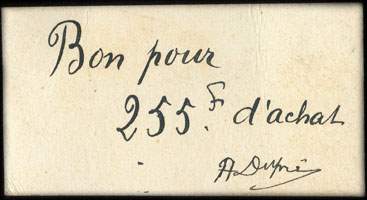 Bon pour
255.F d'achat